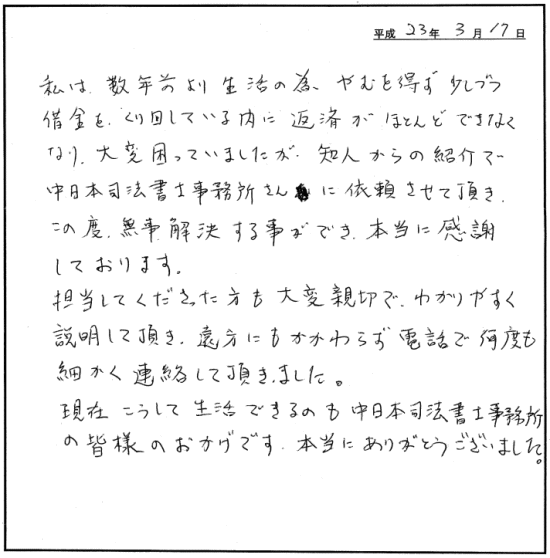 平成 23年 3月 17日
私は、数年前より生活の為、やむを得ず少しづつ
借金を、くり回している内に返済がほとんどできなく
なり、大変困っていましたが、知人からの紹介で
中日本司法書士事務所さんに依頼させて頂き、
この度、無事、解決する事ができ、本当に感謝
しております。
担当してくださった方も大変親切で、わかりやすく
説明して頂き、遠方にもかかわらず電話で何度も
細かく連絡して頂きました。
現在こうして生活できるのも中日本司法書士事務所
の皆様のおかげです。本当にありがとうございました。